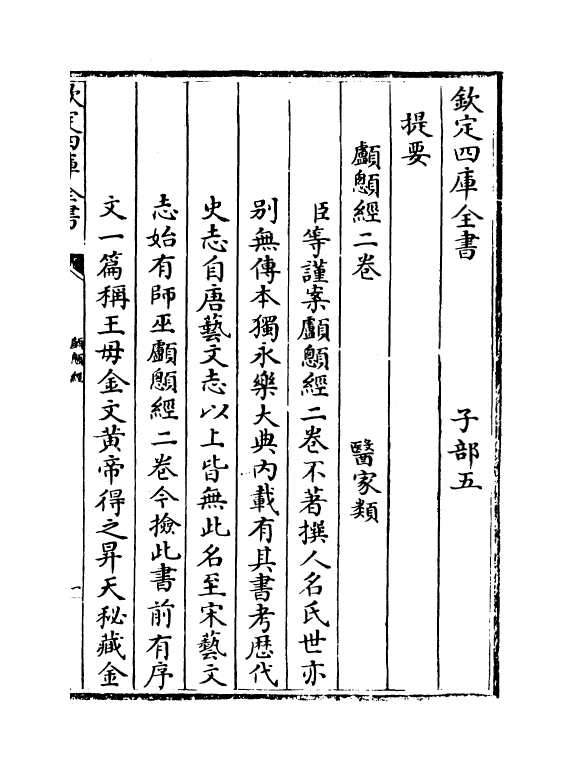 欽定四庫全書　　　　子部五
提要　　　　　　　　醫家類
顱顖經二卷
臣等謹案顱顖經二卷不著撰人名氏世亦
别無傳本獨永樂大典内載有其書考歴代
史志自唐藝文志以上皆無此名至宋藝文
志始有師巫顱顖經二卷今撿此書前有序
文一篇稱王母金文黄帝得之昇天秘藏金
欽定四庫全書
顱顖經
一